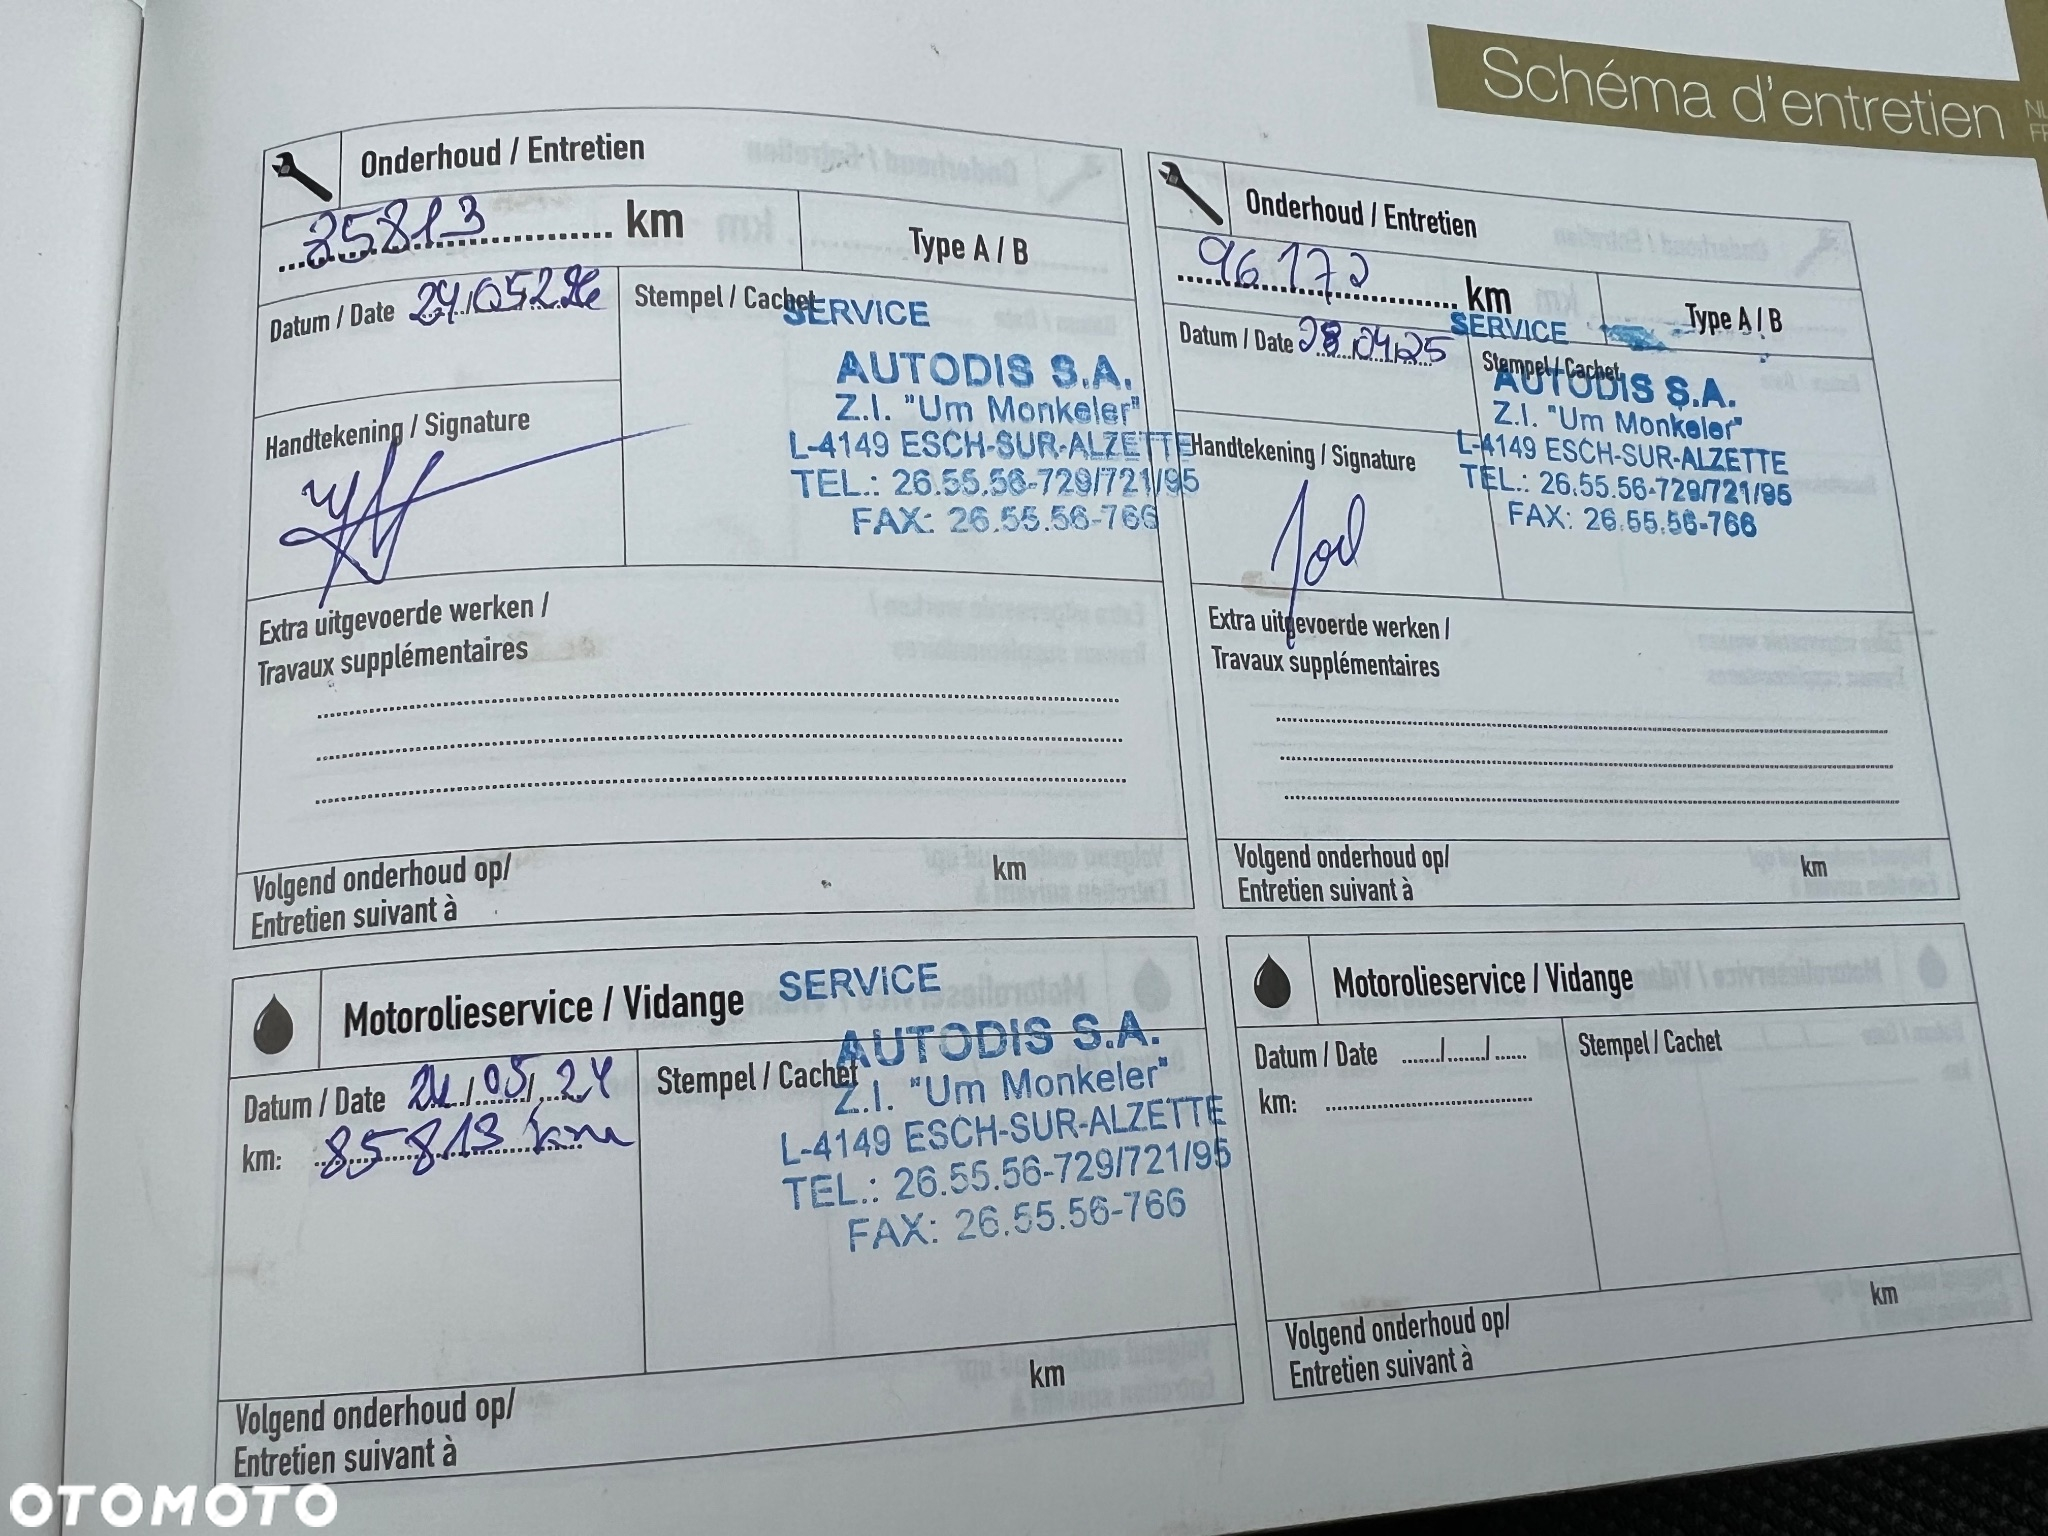 Schéma d'entretien
Onderhoud / Entretien
85813 km
Type A / B
Datum / Date
Stempel / Cachet
SERVICE
AUTODIS S.A.
Z.I. "Um Monkeler"
L-4149 ESCH-SUR-ALZETTE
TEL.: 26.55.56-729/721/95
FAX: 26.55.56-766
Handtekening / Signature
Extra uitgevoerde werken /
Travaux supplémentaires
Volgend onderhoud op/
Entretien suivant à
km
Onderhoud / Entretien
96172 km
Type A / B
Datum / Date 28.04.25
Stempel / Cachet
SERVICE
AUTODIS S.A.
Z.I. "Um Monkeler"
L-4149 ESCH-SUR-ALZETTE
TEL.: 26.55.56-729/721/95
FAX: 26.55.56-766
Handtekening / Signature
Extra uitgevoerde werken /
Travaux supplémentaires
Volgend onderhoud op/
Entretien suivant à
km
Motorolieservice / Vidange
Datum / Date 24/05/24
km: 85813 km
Stempel / Cachet
SERVICE
AUTODIS S.A.
Z.I. "Um Monkeler"
L-4149 ESCH-SUR-ALZETTE
TEL.: 26.55.56-729/721/95
FAX: 26.55.56-766
Volgend onderhoud op/
Entretien suivant à
km
Motorolieservice / Vidange
Datum / Date ......./......./......
km:
Stempel / Cachet
Volgend onderhoud op/
Entretien suivant à
km
OTOMOTO